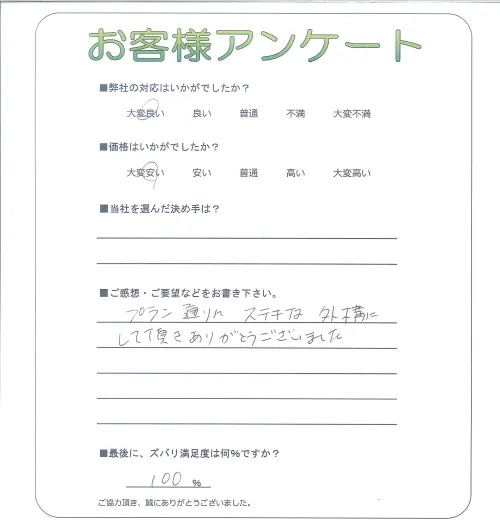 お客様アンケート
■弊社の対応はいかがでしたか？
大変良い 良い 普通 不満 大変不満
■価格はいかがでしたか？
大変安い 安い 普通 高い 大変高い
■当社を選んだ決め手は？
■ご感想・ご要望などをお書き下さい。
プラン通りに ステキな 外構に
して頂きありがとうございました
■最後に、ズバリ満足度は何%ですか？
100 %
ご協力頂き、誠にありがとうございました。